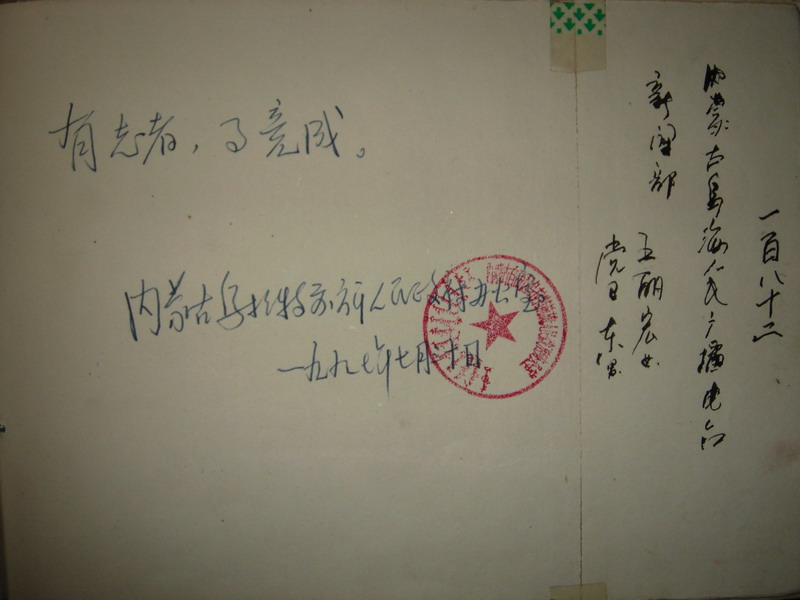 有志者，事竟成。
内蒙古乌拉特前旗人民政府办公室
一九九七年七月廿日
一百八十二
内蒙古乌海人民广播电台
新闻部
王丽宏 女
党日东 男